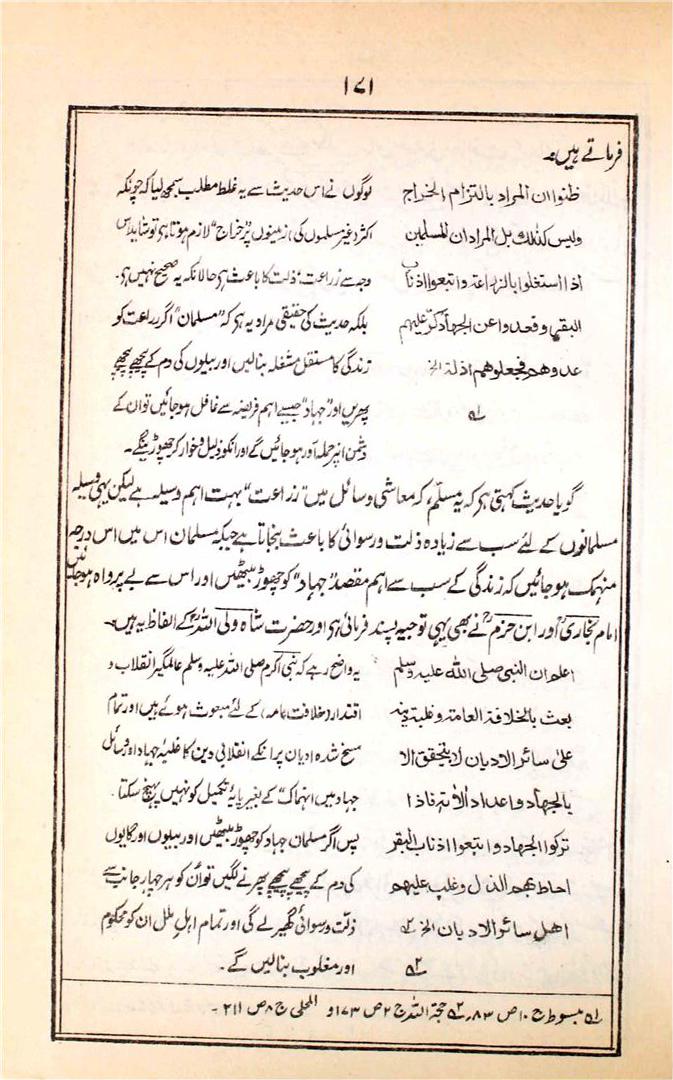 ۱۷۱
فرماتے ہیں:-
ظنوا ان المراد بالتزام الخراج
ولیس کذلك بل المراد ان المسلمین
اذا اشتغلوا بالزراعۃ واتبعوا اذناب
البقر وقعدوا عن الجھاد کرّ علیہم
عدوھم فجعلوھم اذلۃ الخ
۱؎
لوگوں نے اس حدیث سے یہ غلط مطلب سمجھ لیا کہ چونکہ
اکثر غیر مسلموں کی زمینوں پر "خراج" لازم ہوتا ہی تو شاید اس
وجہ سے زراعت "ذلت کا باعث ہی حالانکہ یہ صحیح نہیں ہی۔
بلکہ حدیث کی حقیقی مراد یہ ہی کہ "مسلمان" اگر زراعت کو
زندگی کا مستقل مشغلہ بنالیں اور بیلوں کی دم کے پیچھے پیچھے
پھریں اور "جہاد" جیسے اہم فریضہ سے غافل ہو جائیں تو ان کے
دشمن انپر حملہ آور ہو جائیں گے اور انکو ذلیل و خوار کر چھوڑینگے۔
گویا حدیث کہتی ہی کہ یہ مسلّم، کہ معاشی وسائل میں "زراعت" بہت اہم وسیلہ ہے لیکن یہی وسیلہ
مسلمانوں کے لئے سب سے زیادہ ذلت و رسوائی کا باعث بنجاتا ہے جبکہ مسلمان اس میں اس درجہ
منہمک ہو جائیں کہ زندگی کے سب سے اہم مقصد "جہاد" کو چھوڑ بیٹھیں اور اس سے بے پرواہ ہو جائیں
امام بخاریؒ اور ابن حزمؒ نے بھی یہی توجیہ پسند فرمائی ہی اور حضرت شاہ ولی اللہؒ کے الفاظ یہ ہیں:-
اعلم ان النبی صلی اللہ علیہ وسلم
بعث بالخلافۃ العامۃ وغلبۃ دینہ
علیٰ سائر الادیان لا یتحقق الا
بالجھاد واعداد الآتہ فاذا
ترکوا الجھاد واتبعوا اذناب البقر
احاط بھم الذل وغلب علیھم
اھل سائر الادیان الخ ۲؎
۲؎
یہ واضح رہے کہ نبی اکرم صلی اللہ علیہ وسلم عالمگیر انقلاب و
اقتدار (خلافت عامہ) کے لئے مبعوث ہوئے ہیں اور تمام
مسخ شدہ ادیان پر انکے انقلابی دین کا غلبہ جہاد اور وسائل
جہاد میں انہماک" کے بغیر پایۂ تکمیل کو نہیں پہنچ سکتا۔
پس اگر مسلمان جہاد کو چھوڑ بیٹھیں اور بیلوں اور گایوں
کی دم کے پیچھے پیچھے پھرنے لگیں تو اُن کو ہر چہار جانب سے
ذلت و رسوائی گھیر لے گی اور تمام اہلِ ملل ان کو محکوم
اور مغلوب بنالیں گے۔
۱؎ مبسوط ج ۱۰ ص ۸۳۔ ۲؎ حجۃ اللہ ج ۲ ص ۱۷۳ و المحلی ج ۸ ص ۲۱۱۔